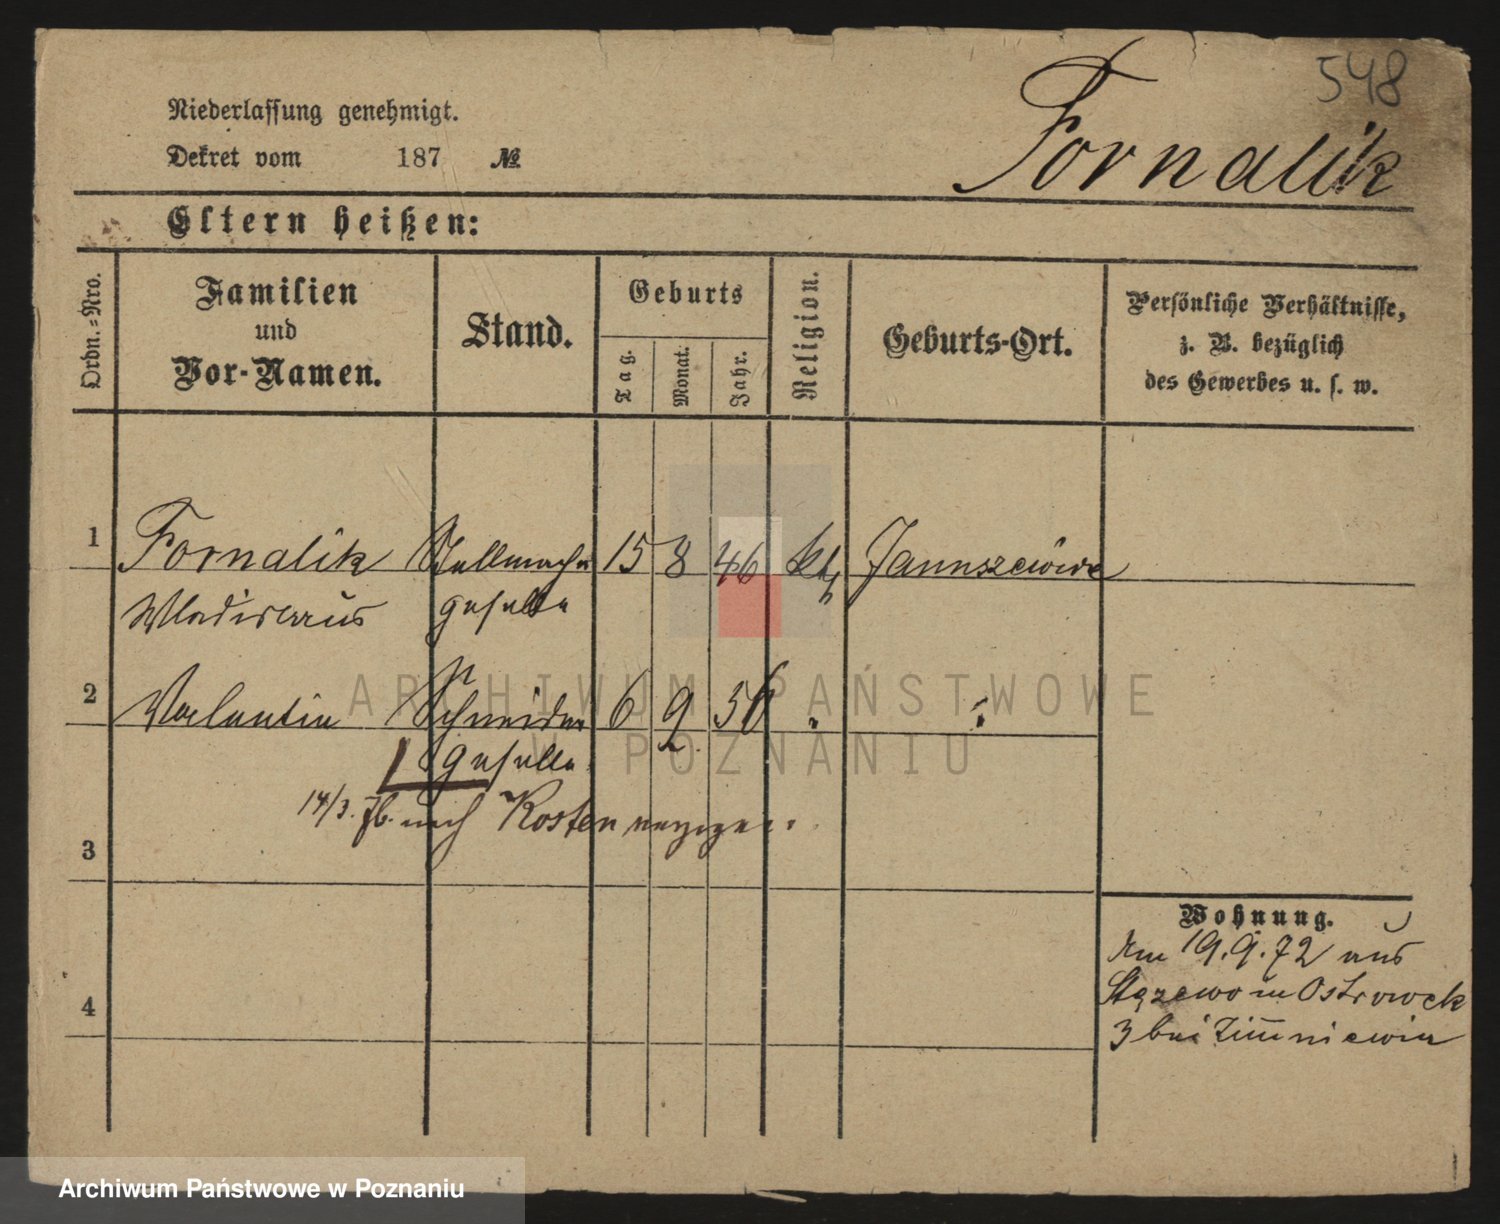 548
Niederlassung genehmigt.
Dekret vom 187 №
Fornalik
Eltern heißen:
Ordn.=Nro.
Familien
und
Vor-Namen.
Stand.
Geburts
Tag.
Monat.
Jahr.
Religion.
Geburts-Ort.
Persönliche Verhältnisse,
z. B. bezüglich
des Gewerbes u. s. w.
1 Fornalik Stellmacher 15 8 46 kth Januszewo
Wladislaus geselle
2 Valentin Schneider 6 9 56 " "
geselle
14/3. 76. nach Kosten verzogen.
3
4
Wohnung.
Am 19.9.72 aus
Stęzewo in Ostrowek
3 bei Zimniewicz
ARCHIWUM PAŃSTWOWE
W POZNANIU
Archiwum Państwowe w Poznaniu